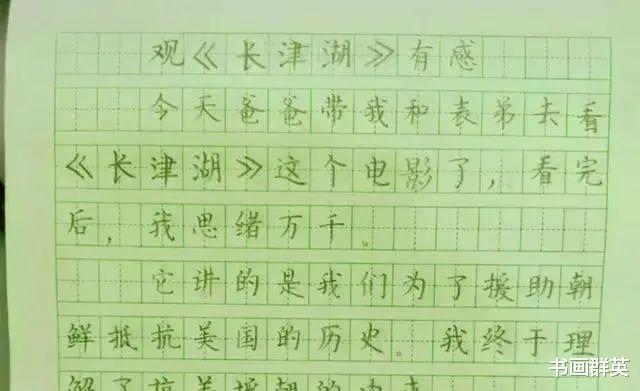 观《长津湖》有感
今天爸爸带我和表弟去看
《长津湖》这个电影了，看完
后，我思绪万千。
它讲的是我们为了援助朝
鲜抵抗美国的历史。我终于理
解了抗美援朝的由来
书画群英